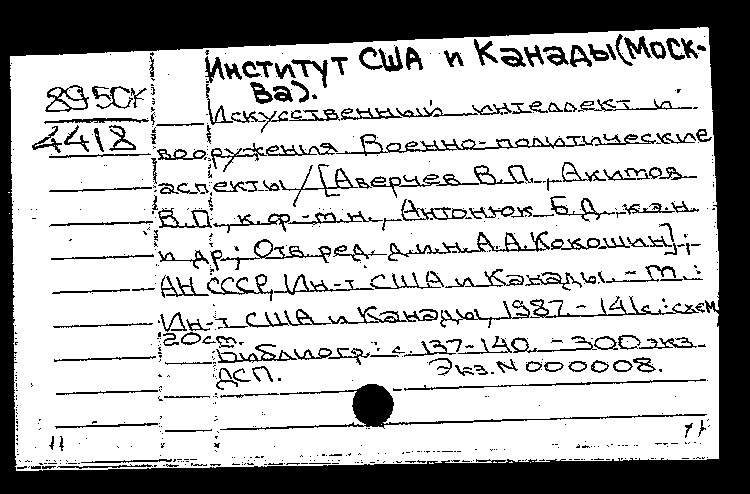 Институт США и Канады(Моск-
ва).
8950к
4418
Искусственный интеллект и
вооружения. Военно-политические
аспекты /[Аверчев В.П., Акимов
В.П., к.ф.-м.н., Антонюк Б.Д., к.э.н.
и др.; Отв. ред. д.и.н. А.А.Кокошин];
АН СССР, Ин-т США и Канады. - М.:
Ин-т США и Канады, 1987.- 141с.:схем,
20см.
Библиогр.: с. 137-140. - 300 экз.
ДСП. Экз. N 000008.